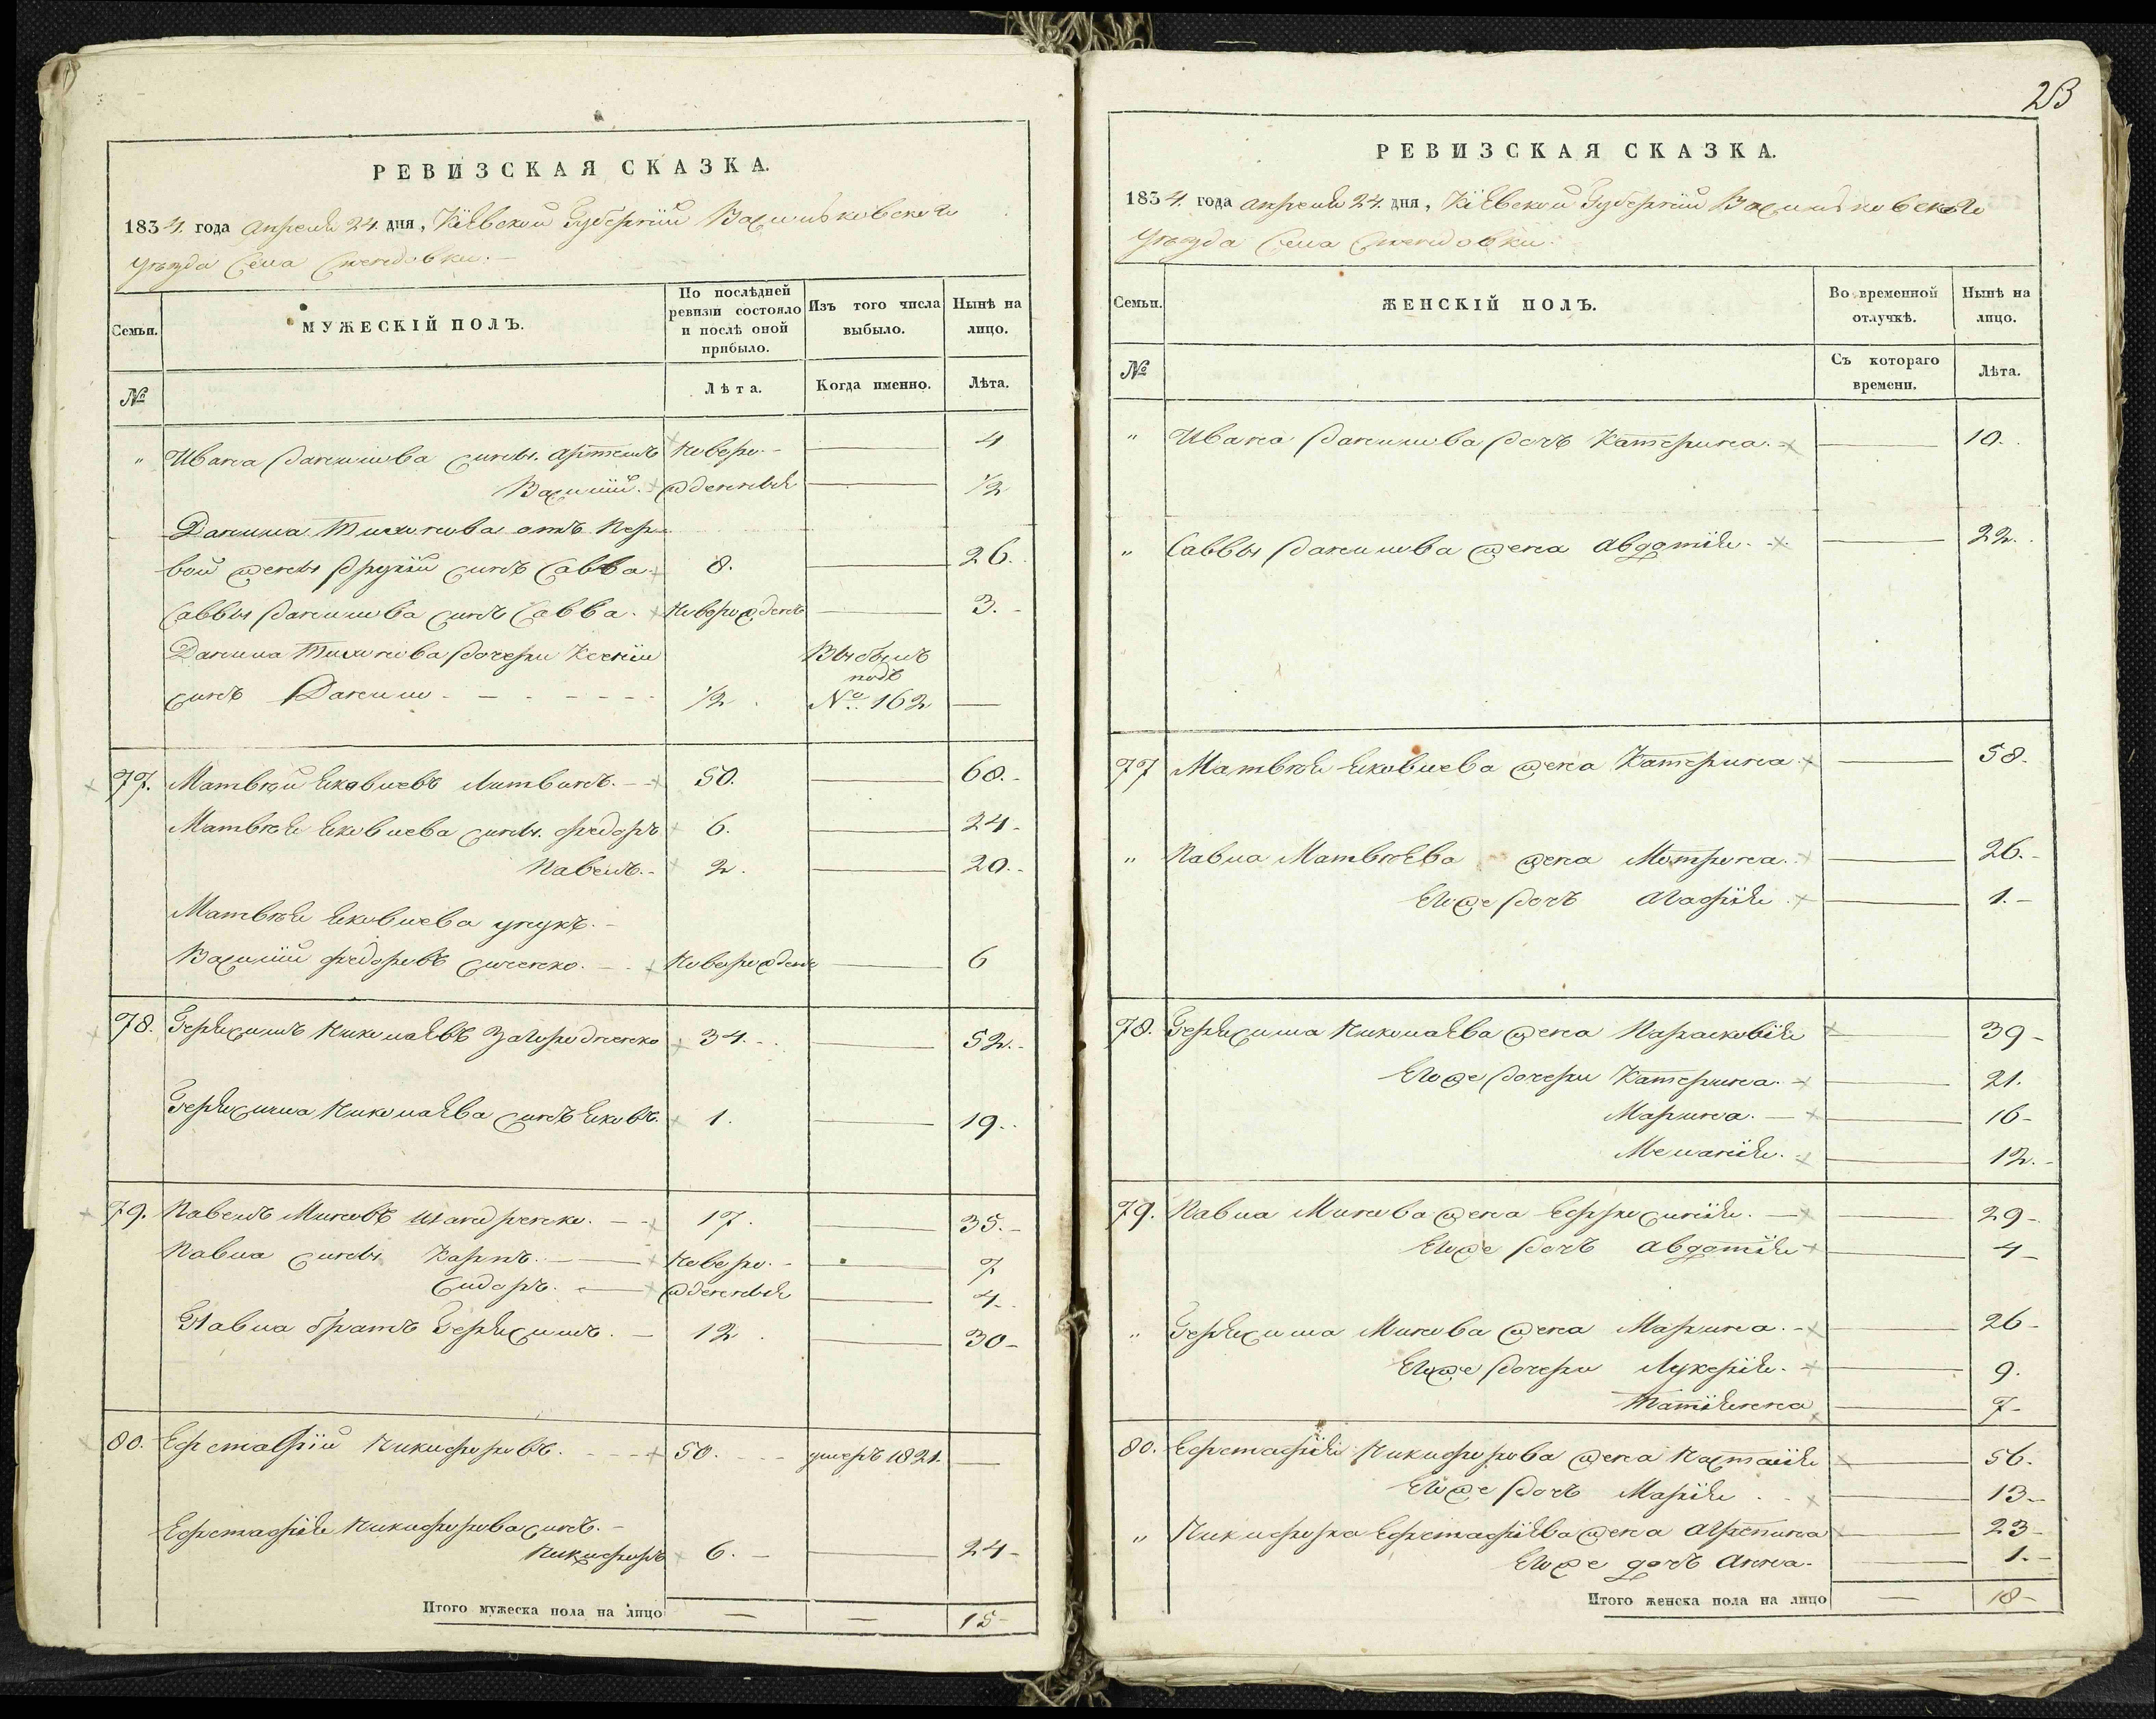 РЕВИЗСКАЯ СКАЗКА.
1834. года Апреля 24. дня, Кіевской Губерніи Васильковскаго
Уѣзда Села
Семьи.
МУЖЕСКІЙ ПОЛЪ.
По послѣдней ревизіи состояло и послѣ оной прибыло.
Изъ того числа выбыло.
Нынѣ на лицо.
№
Лѣта.
Когда именно.
Лѣта.
" Ивана Данилова сыны. Артемъ Новоро- — 4
Василій. жденныя — 1/2
Данила Тихонова отъ пер-
вой жены другій сынъ Савва 8. — 26.
Саввы Данилова сынъ Савва. Новорожденъ — 3.
Данила Тихонова дочери Ксеніи Выбылъ
подъ
сынъ Данило - - - - 1/2 № 162 —
77. Матвѣй Яковлевъ Литвинъ. 50. — 68.
Матвѣя Яковлева сыны. Федоръ 6. — 24
Павелъ. 2. — 20.
Матвѣя Яковлева унукъ.
Василій Федоровъ Новорожденъ — 6
78. Герасимъ Николаевъ Загородненко 34. — 52.
Герасима Николаева сынъ Яковъ. 1. — 19.
79. Павелъ Миновъ 17. — 35.
Павла сыны Карпъ. — Новоро- — 7
Сидоръ. — жденныя — 4.
Павла братъ Герасимъ. 12. — 30
80. Ефстафій Никифоровъ. 50. умеръ 1821. —
Ефстафія Никифорова сынъ.
Никифоръ 6. — 24
Итого мужеска пола на лицо — — 15
23
РЕВИЗСКАЯ СКАЗКА.
1834. года Апреля 24. дня, Кіевской Губерніи Васильковскаго
Уѣзда Села
Семьи.
ЖЕНСКІЙ ПОЛЪ.
Во временной отлучкѣ.
Нынѣ на лицо.
№
Съ котораго времени.
Лѣта.
" Ивана Данилова дочъ Катерина. — 10.
" Саввы Данилова жена Авдотія. — 22.
77 Матвѣя Яковлева жена Катерина — 58.
" Павла Матвѣева жена Мотрина. — 26.
Егоже дочъ Агафія — 1.
78. Герасима Николаева жена Парасковія — 39
Егоже дочери Катерина. — 21.
Марина. — 16
Меланія. — 12.
79. Павла Минова жена Ефросинія. — 29
Егоже дочъ Авдотія — 4
" Герасима Минова жена Марина. — 26
Егоже дочери Лукерія. — 9.
Татіянна — 7
80. Ефстафія Никифорова жена Настасія — 56.
Егоже дочъ Марія — 13
" Никифора Ефстафіева жена Агрепина — 23
Егоже дочъ Анна. — 1.
Итого женска пола на лицо — 18